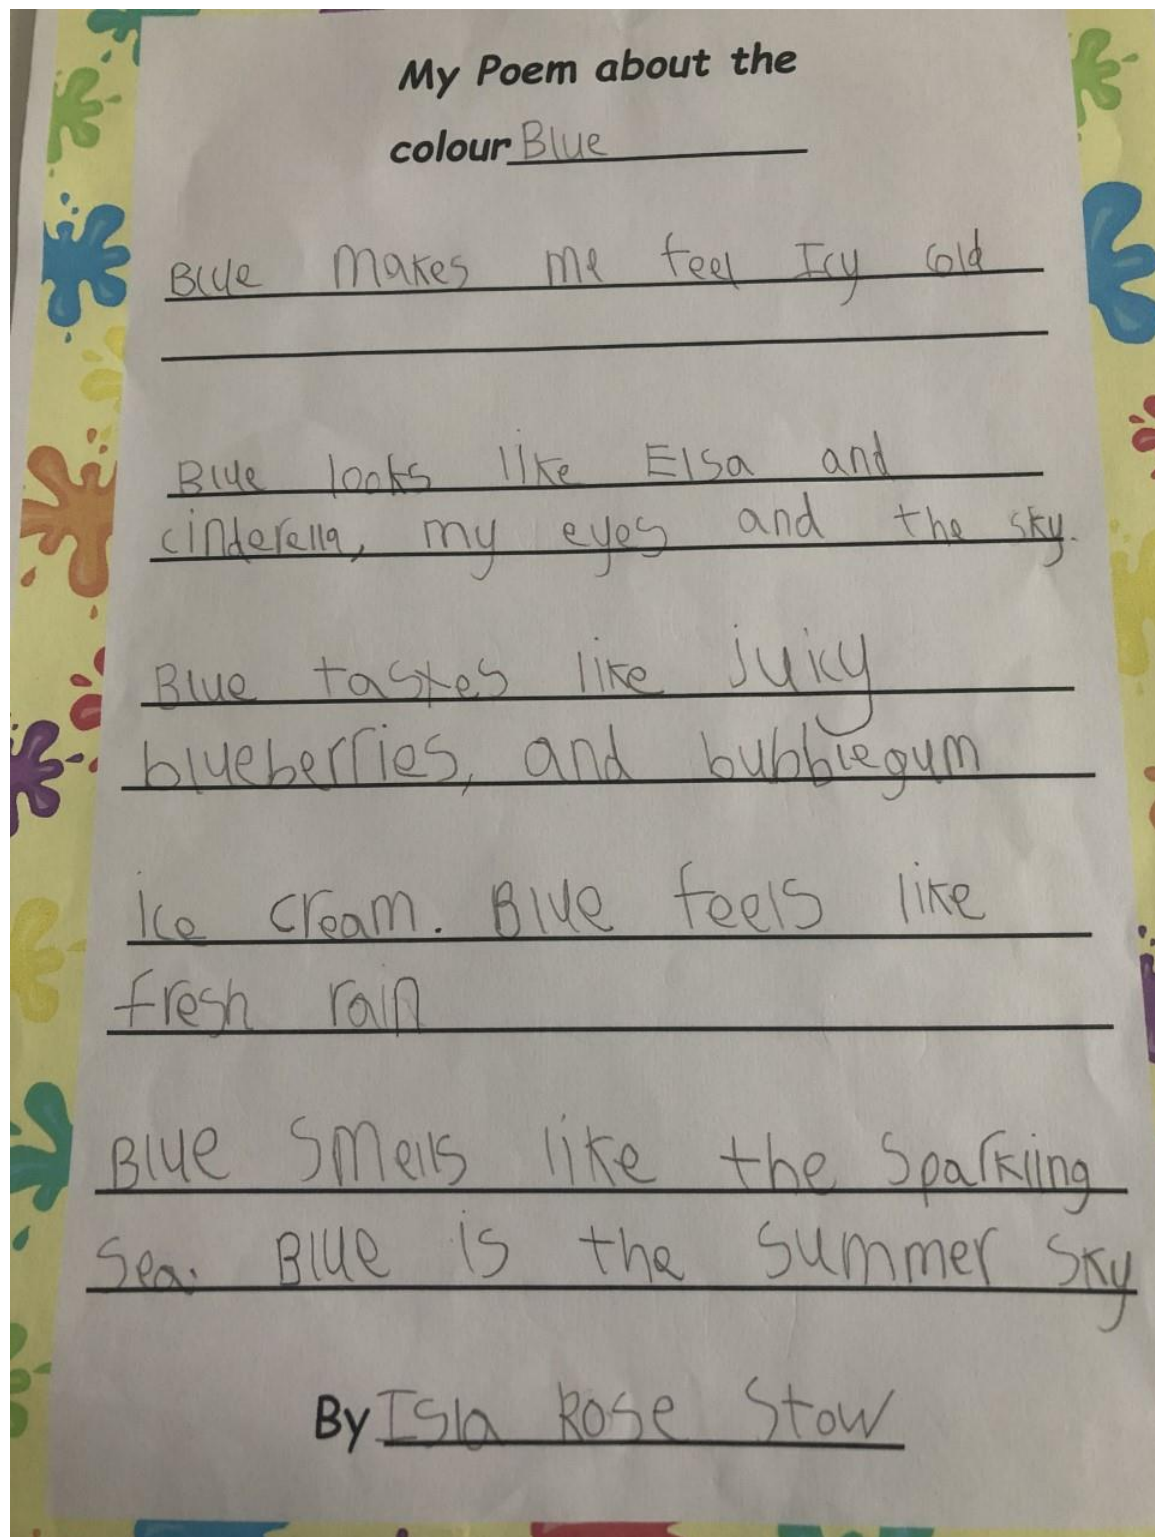 My Poem about the
colour Blue
Blue makes me feel Icy cold
Blue looks like Elsa and
cinderella, my eyes and the sky.
Blue tastes like juicy
blueberries, and bubblegum
ice cream. Blue feels like
fresh rain
Blue smells like the sparkling
sea. Blue is the summer sky
By Isla Rose Stow